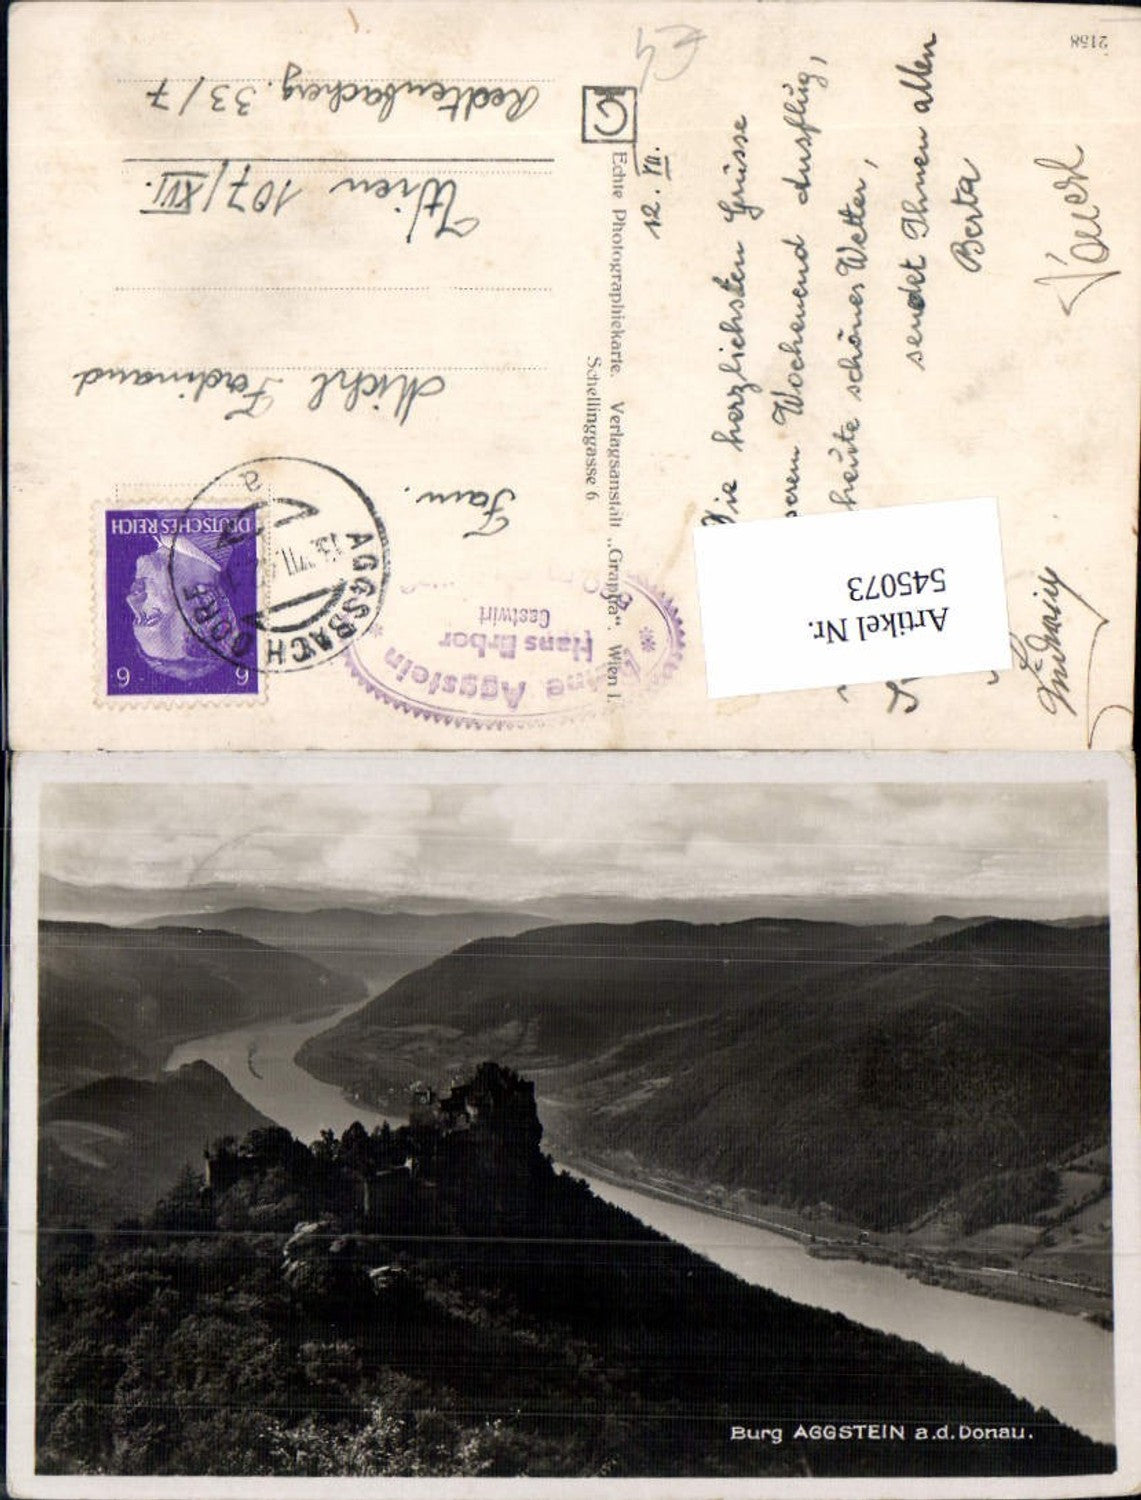 2158
Die herzlichsten Grüsse
Wochenend Ausflug,
heute schönes Wetter,
sendet Ihnen allen
Berta
12. VII.
Echte Photographiekarte. Verlagsanstalt „Grapha“, Wien I.,
Schellinggasse 6
Fam.
Michl Ferdinand
Wien 107/XVI.
Redtenbacherg. 33/7
DEUTSCHES REICH
6 6
AGGSBACH DORF
a
Aggstein
Hans Erber
Gastwirt
Artikel Nr.
545073
Burg AGGSTEIN a.d. Donau.